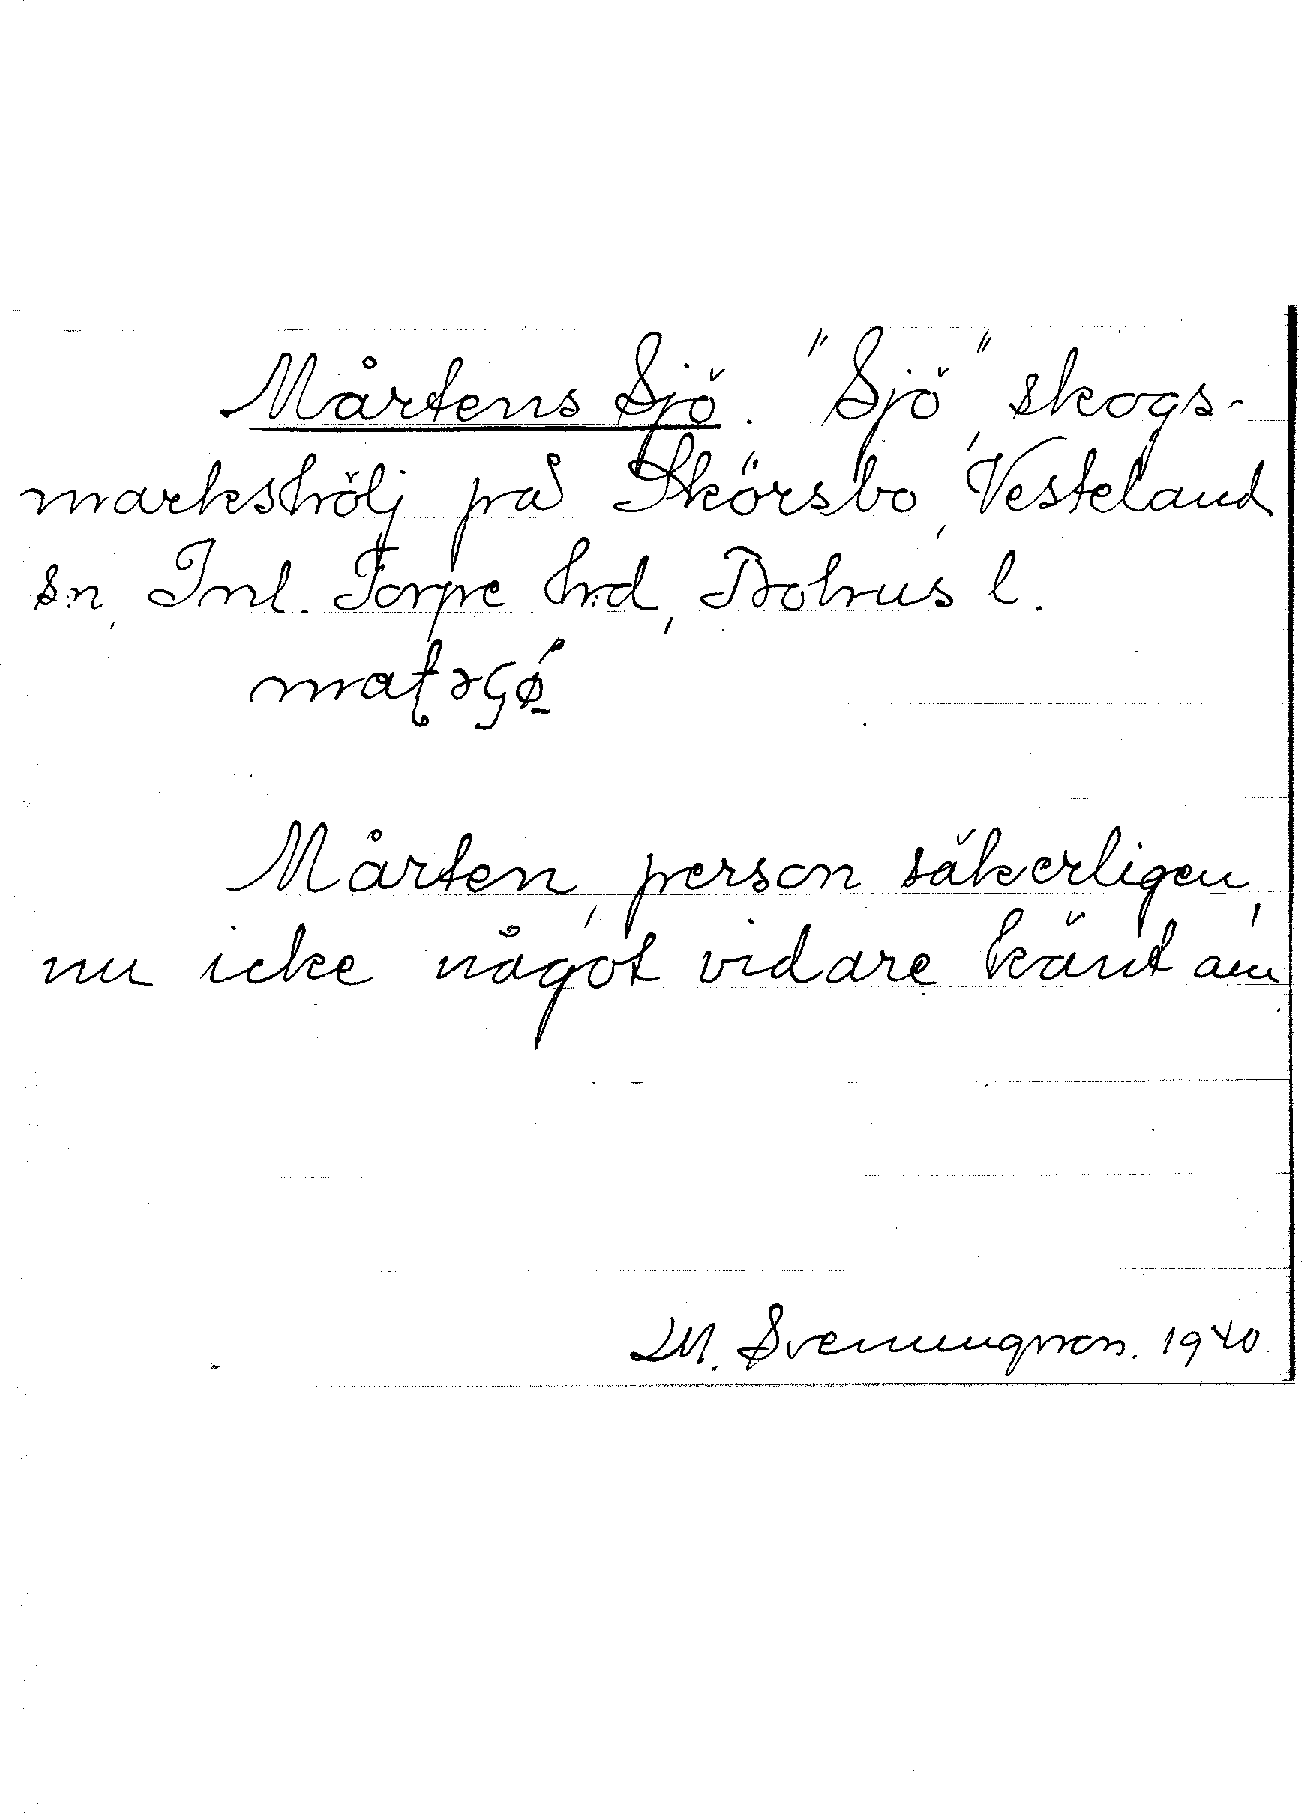 Mårtens Sjö. "Sjö", skogs-
markshölj på Skörsbo, Vesteland
sn, Inl. Torpe hrd, Bohus l.
Mårten, person säkerligen,
nu icke något vidare känt om
M. Svenungsson. 1940.